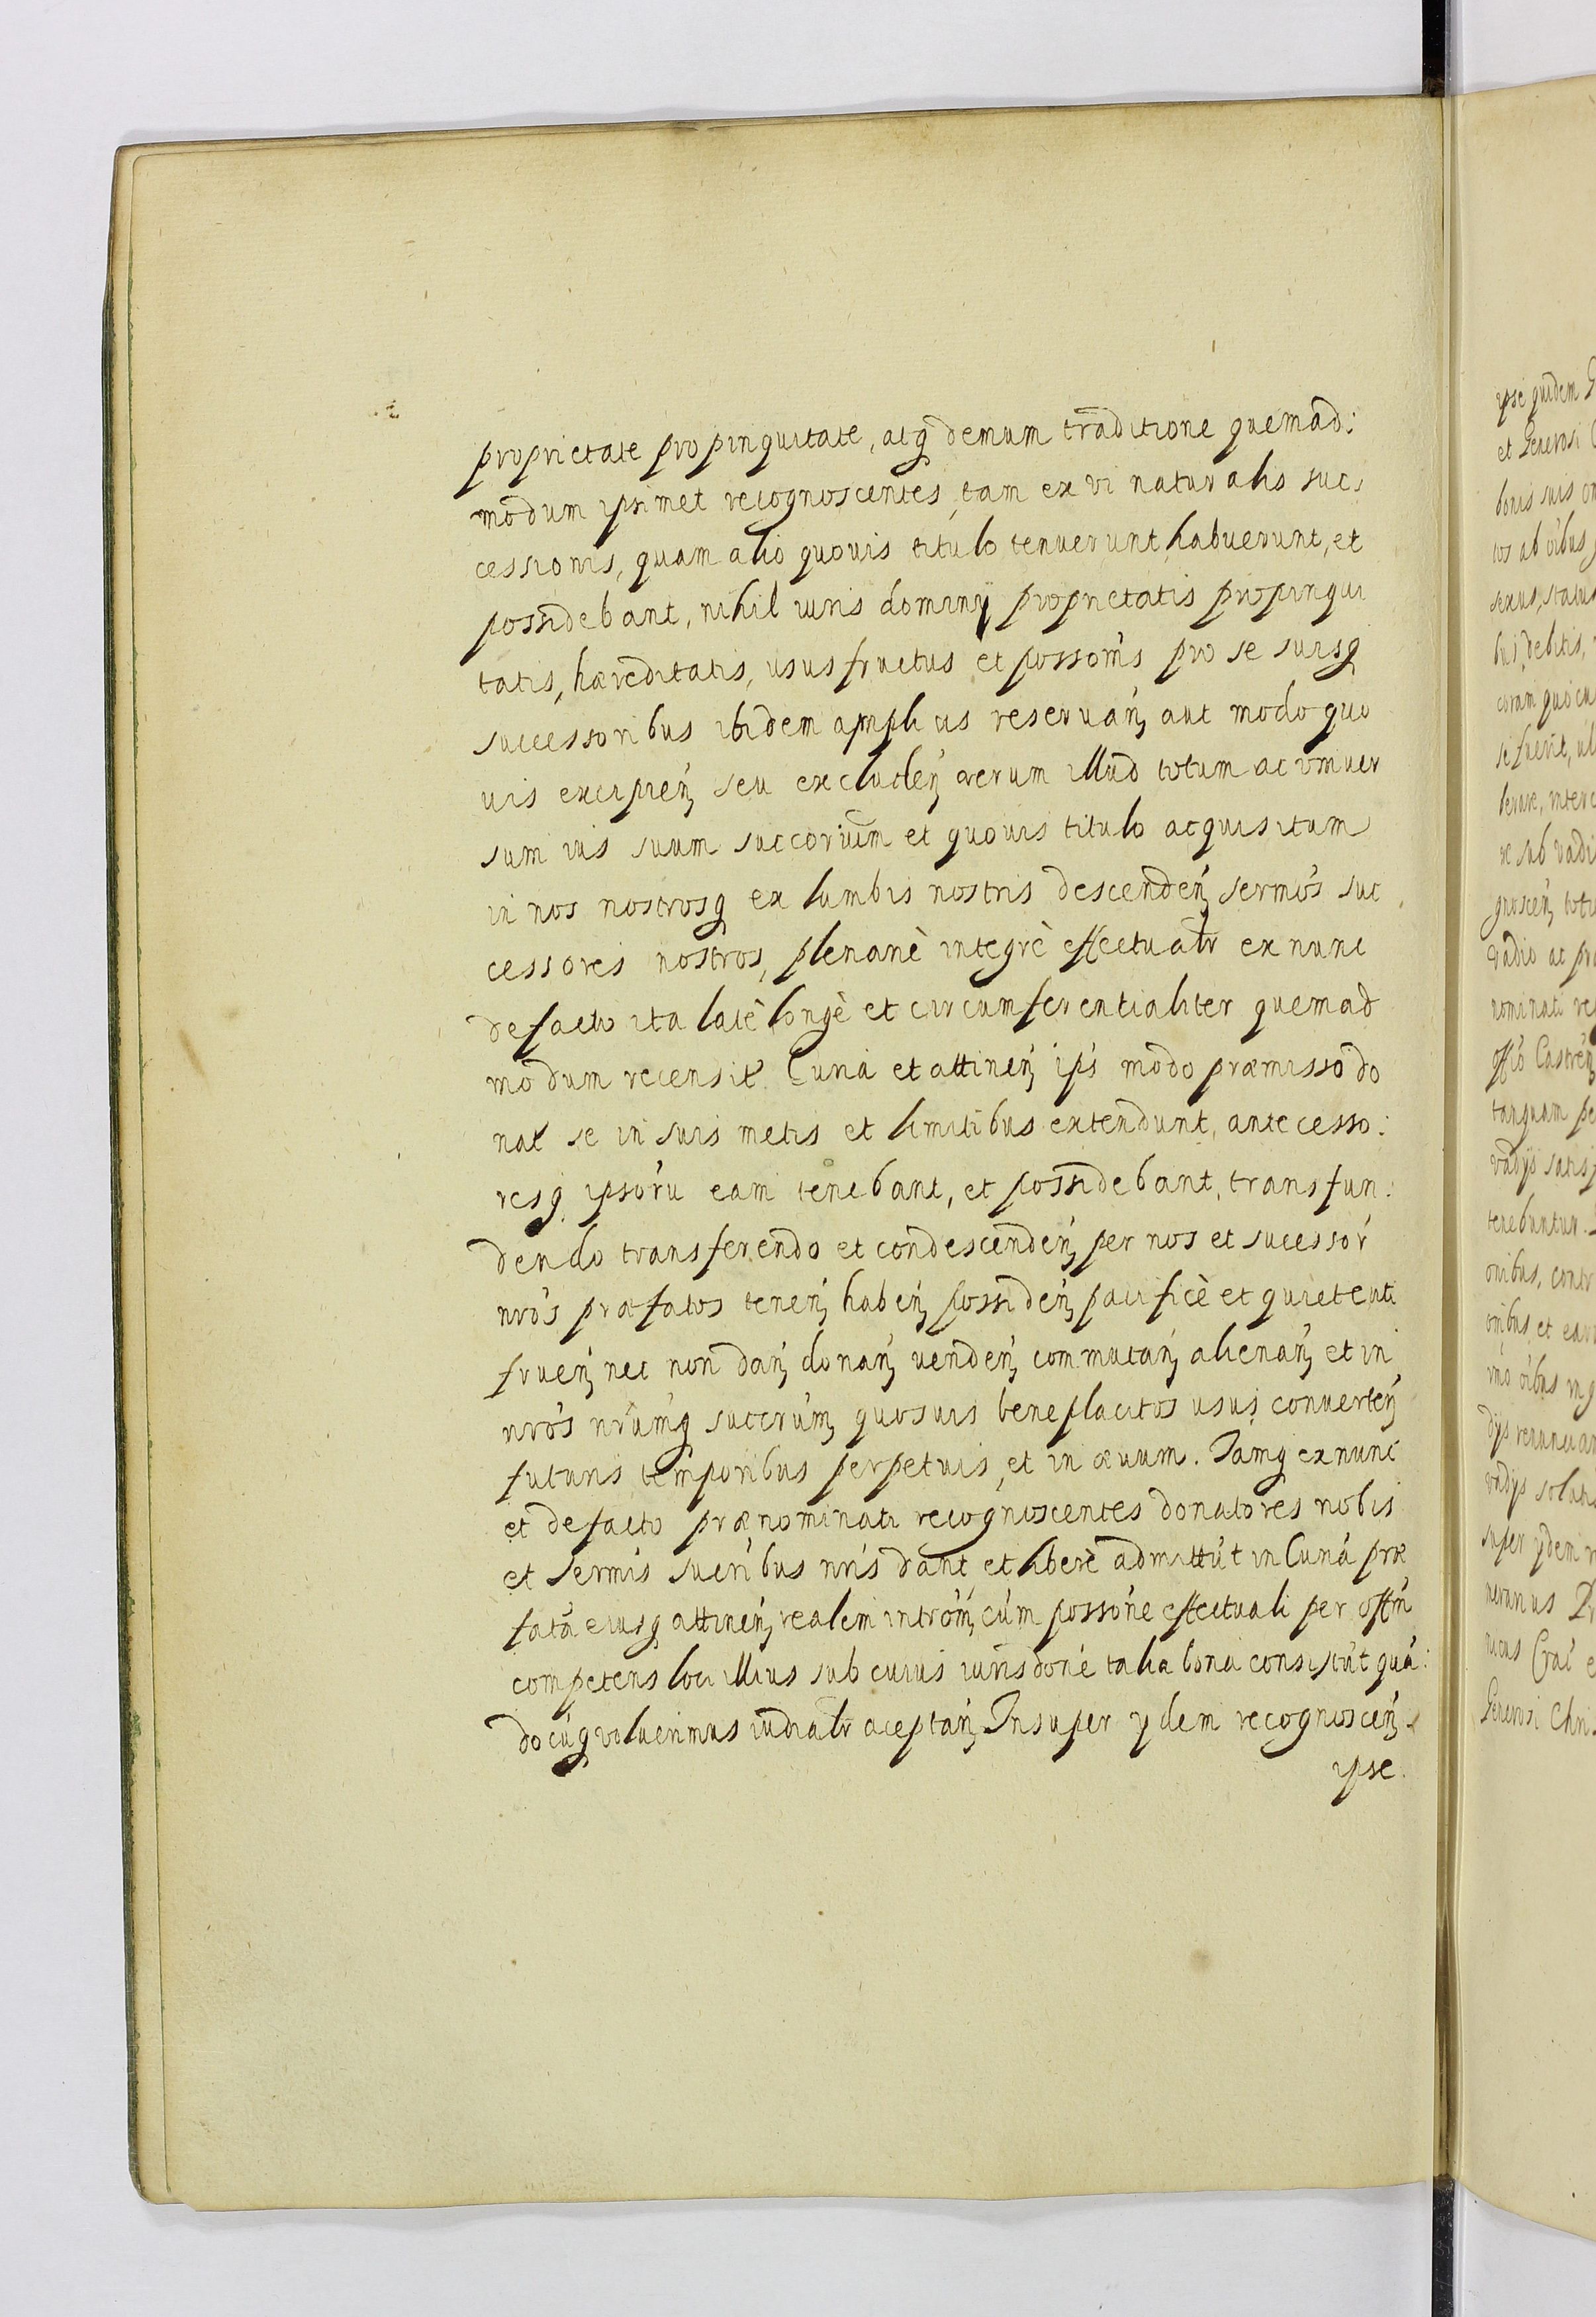 proprietate propinquitate, atq demum traditione quemad:
modum ipsimet recognoscentes, tam ex vi naturalis suc,
cessionis, quam alio quovis titulo tenuerunt, habuerunt, et
possidebant, nihil iuris dominÿ proprietatis propinqui
tatis, hæreditatis, usus fructus et possoms pro se suisq
successoribus ibidem amplius reservań aut modo quo
vis excipień seu excludeń verum illud totum ac univer
sum ius suum succorium et quovis titulo acquisitum
in nos nostrosq ex lumbis nostris descendeń sermós suc
cessores nostros, plenariè integrè effectualr ex nunc
de facto ita latè longè et circumferentialiter quemad
modum recensit Curia et attineń ips modo præmisso do
nat se in suis metis et limitibus extendunt, antecesso:
resq ipsorú eam tenebant, et possidebant, transfun:
dendo transferendo et condescendeń per nos et sucessor
nrós præfatos teneń habeń possideń pacificè et quiete uti
frueń nec non dań donań vendeń commutań alienań et in
nrós nrúmq succrúm quosvis beneplacitos usus converteń
futuris temporibus perpetuis, et in ævum. Iamq ex nunc
et de facto prænominati recognoscentes donatores nobis
et sermis sucribus nris dant et liberè admittút in Curiá præ
fatá eiusq attineń realem intróm cúm possońe effectuali per offm
competens loci illius sub cuius iurisdońe talia bona consistút quá:
docúq voluerimus iudialr aceptań Insuper ydem recognosceń
ipse
ipse quidem
et Generosi
bonis suis
tos ab oibus
sexus, status
debitis,
coram
se fuerit,
re sub
vadio ac
nominati
offió Castreń
tanquam
vadÿs
tenebuntur.
onibus,
et
oibus
vadÿs
super ydem
Generosi